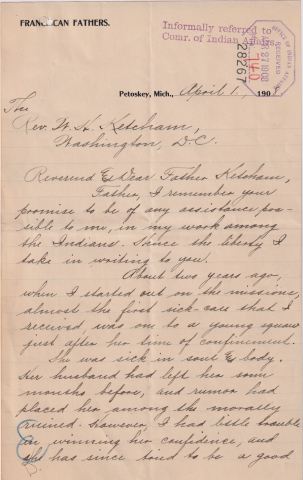 FRANCISCAN FATHERS.
Informally referred to
Comr. of Indian Affairs.
28267
Petoskey, Mich., April 1, 190
The
Rev. W. H. Ketcham,
Washington, D.C.
Reverend & Dear Father Ketcham,
Father, I remember your
promise to be of any assistance pos-
sible to me, in my work among
the Indians. Hence the liberty I
take in writing to you.
About two years ago,
when I started out on the missions,
almost the first sick-care that I
received, was one to a young squaw
just after her time of confinement.
She was sick in soul & body.
Her husband had left her some
months before, and rumor had
placed her among the morally
ruined. However, I had little trouble
in winning her confidence, and
she has since tried to be a good